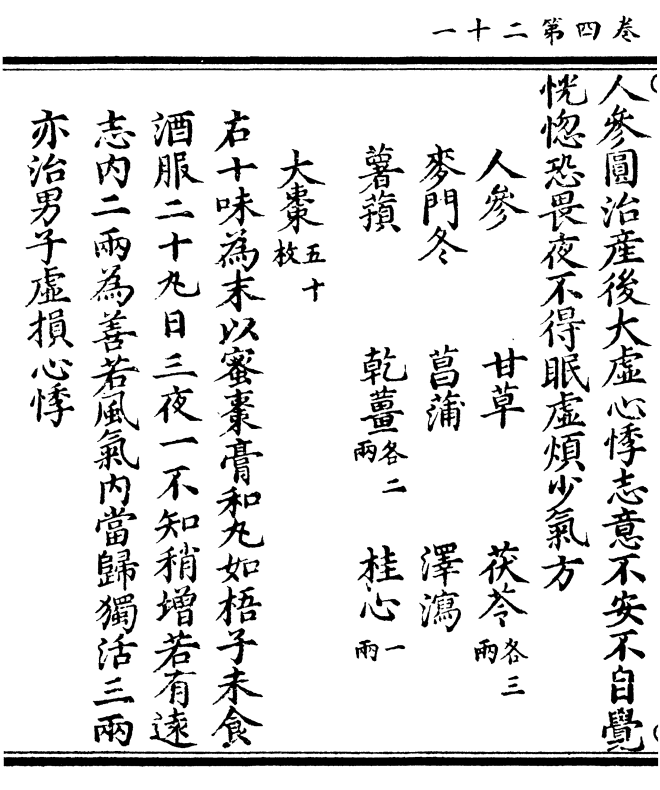 卷四第二十一
人參圓治産後大虛心悸志意不安不自覺
恍惚恐畏夜不得眠虛煩少氣方
人參 甘草 茯苓各三兩
麥門冬 菖蒲 澤瀉
薯蕷 乾薑各二兩 桂心一兩
大棗五十枚
右十味為末以蜜棗膏和丸如梧子未食
酒服二十丸日三夜一不知稍增若有遠
志内二兩為善若風氣内當歸獨活三兩
亦治男子虛損心悸